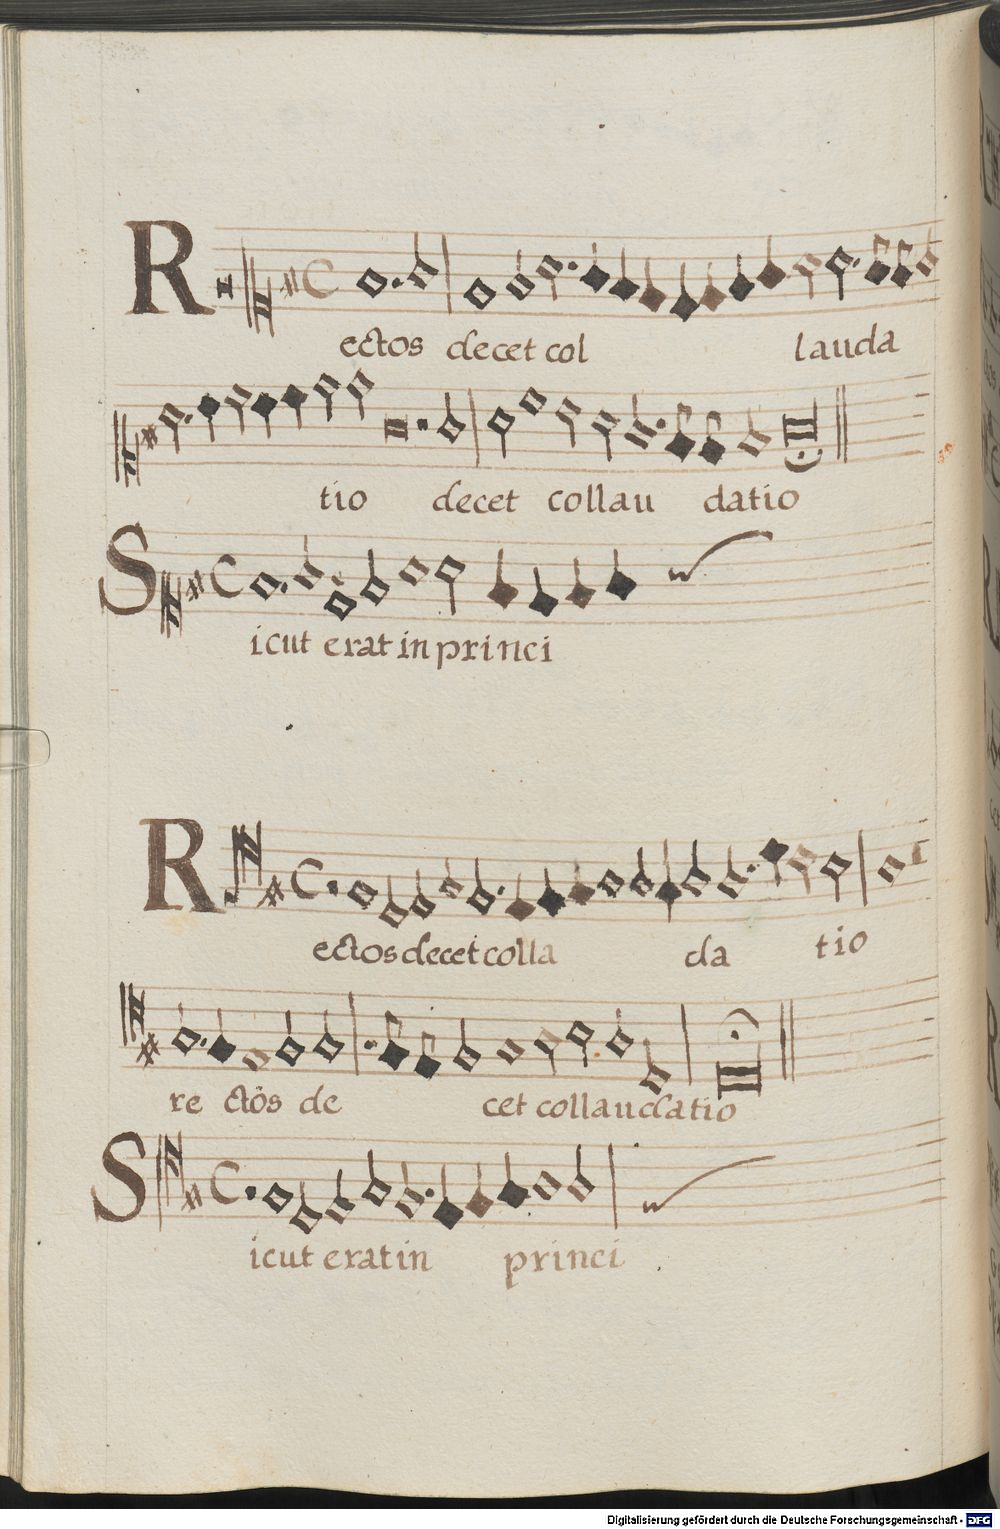 Rectos decet col lauda
tio decet collau datio
Sicut erat in princi
Rectos decet colla da tio
re ctos de cet collaudatio
Sicut erat in princi
Digitalisierung gefördert durch die Deutsche Forschungsgemeinschaft - DFG